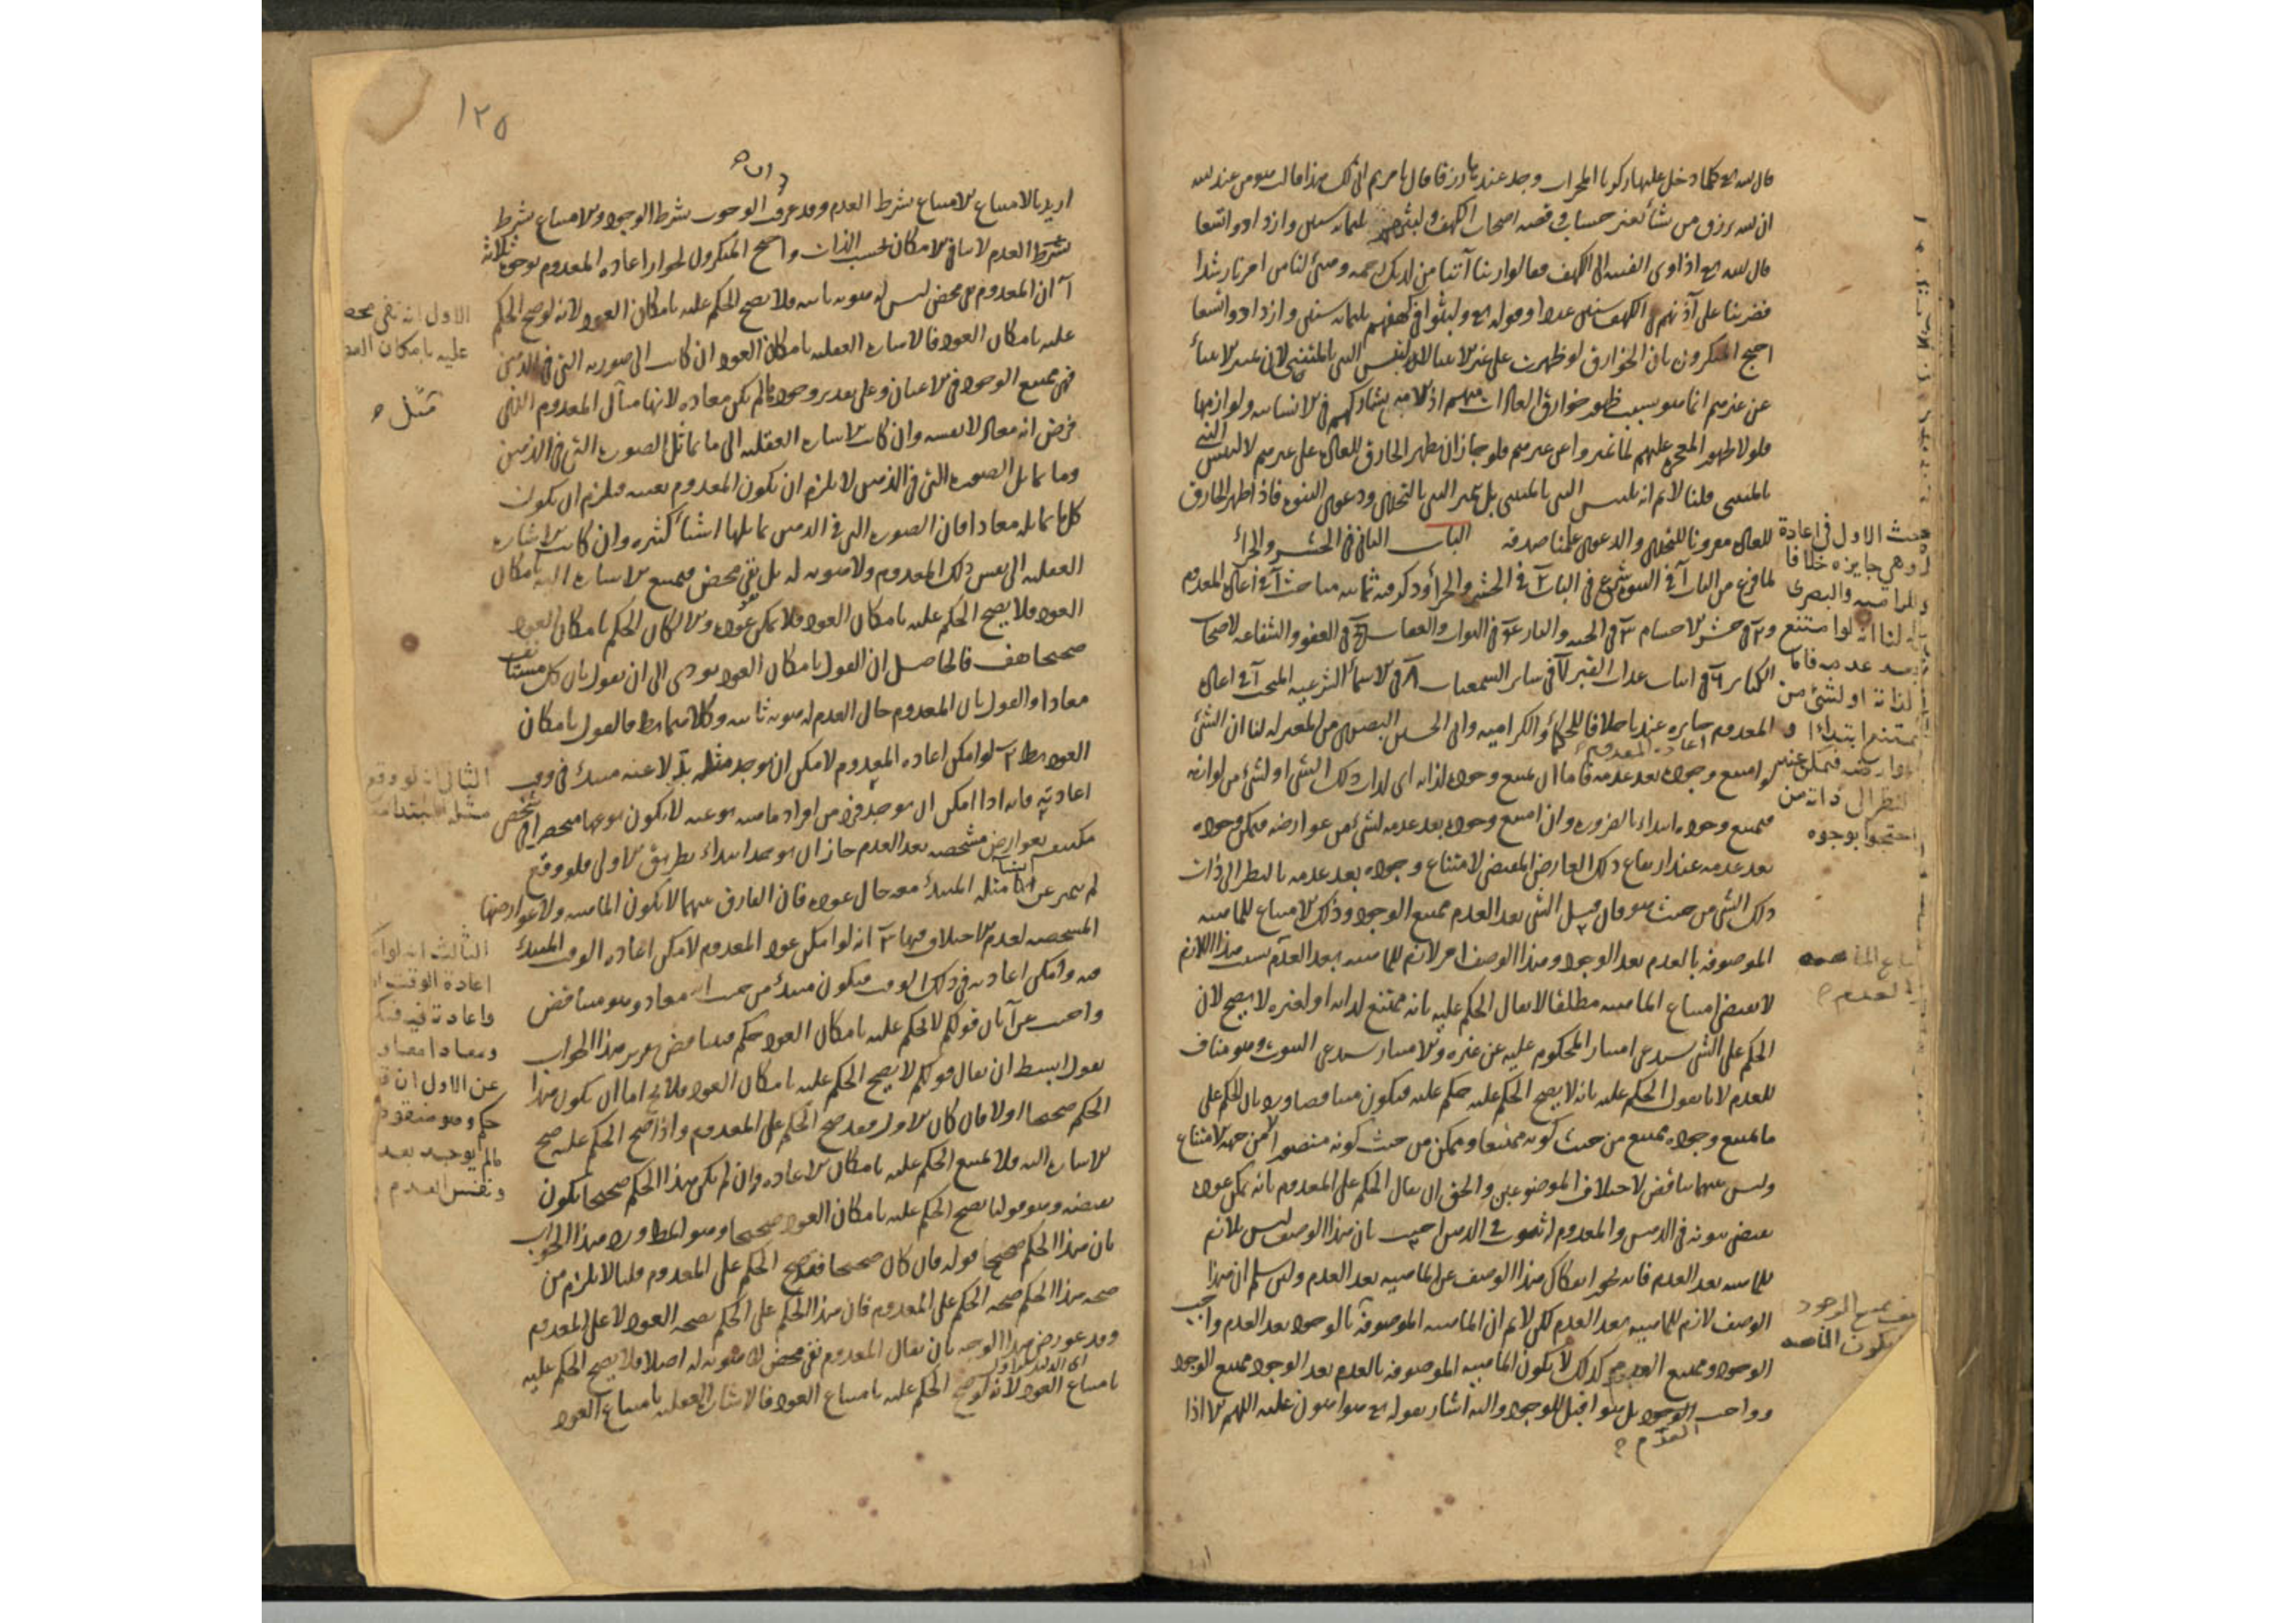 قال الله تع كلما دخل عليها زكريا المحراب وجد عندها رزقا قال يا مريم انى لك هذا قالت هو من عند الله
ان الله يرزق من يشاء بغير حساب وقصه اصحاب الكهف ولبثهم ثلثمايه سنين وازدادوا تسعا
قال الله تع اذ اوى الفتيه الى الكهف فقالوا ربنا آتنا من لدنك رحمه وهيئ لنا من امرنا رشدا
فضربنا على آذانهم في الكهف سنين عددا وقوله تع ولبثوا في كهفهم ثلثمايه سنين وازدادوا تسعا
احتج المنكرون بان الخوارق لو ظهرت على غير الانبياء لالتبس النبي بالمتنبي لان تميز الانبياء
عن غيرهم انما هو بسبب ظهور خوارق العادات منهم اذ الامه يشاركهم في الانسانيه ولوازمها
فلولا ظهور المعجزه عليهم لما تميزوا عن غيرهم فلو جاز ان يظهر الخارق للعاده على غيرهم لالتبس النبي
بالمتنبي قلنا لا نم انه يلتبس النبي بالمتنبي بل تميز النبي بالتحدي ودعوى النبوه فاذا ظهر الخارق
للعاده مقرونا بالتحدي والدعوى علمنا صدقه الباب الثاني في الحشر والجزاء
لما فرغ من الباب آ في النبوه شرع في الباب ٢ في الحشر والجزاء وذكر فيه ثمانيه مباحث آ في اعاده المعدوم
و٢ في حشر الاجسام ٣ في الجنه والنار ٤ في الثواب والعقاب ٥ في العفو والشفاعه لاصحاب
الكبائر ٦ في اثبات عذاب القبر ٧ في ساير السمعيات ٨ في الاسماء الشرعيه المبحث آ في اعاده
المعدوم جايزه عندنا خلافا للحكماء والكراميه وابي الحسين البصري من المعتزله لنا ان الشئ
لو امتنع وجوده بعد عدمه فاما ان يمتنع وجوده لذاته اى لذات ذلك الشئ او لشئ من لوازمه
فيمتنع وجوده ابتداء بالضروره وان امتنع وجوده بعد عدمه لشئ من عوارضه فيمكن وجوده
بعد عدمه عند ارتفاع ذلك العارض المقتضي لامتناع وجوده بعد عدمه بالنظر الى ذات
ذلك الشئ من حيث هو قال قيل الشئ بعد العدم ممتنع الوجود وذلك الامتناع للماهيه
الموصوفه بالعدم بعد الوجود وهذا الوصف امر لازم للماهيه بعد العدم بسبب هذا اللازم
لا يقتضي امتناع الماهيه مطلقا لا يقال الحكم عليه بانه ممتنع لذاته او لغيره لا يصح لان
الحكم على الشئ يستدعي امتياز المحكوم عليه عن غيره والامتياز يستدعي الثبوت وهو مناف
للعدم لانا نقول الحكم عليه بانه لا يصح الحكم عليه حكم عليه فيكون متناقضا ورد بان الحكم على
ما يمتنع وجوده ممتنع من حيث كونه ممتنعا وممكن من حيث كونه متصورا من جهه الامتناع
وليس بينهما تناقض لاختلاف الموضوعين والحق ان يقال الحكم على المعدوم بانه يمكن عوده
يقتضي ثبوته في الذهن والمعدوم له ثبوت في الذهن اجيب بان هذا الوصف ليس بلازم
للماهيه بعد العدم فانه يجوز انفكاك هذا الوصف عن الماهيه بعد العدم ولئن سلم ان هذا
الوصف لازم للماهيه بعد العدم لكن لا نم ان الماهيه الموصوفه بالوجود بعد العدم واجب
الوجود وممتنع العدم كذلك لا يكون الماهيه الموصوفه بالعدم بعد الوجود ممتنع الوجود
وواجب العدم بل هو اقبل للوجود واليه اشار بقوله تع هو اهون عليه اللهم الا اذا
بحث الاول في اعادة
وهي جايزه خلافا
والكراميه والبصرى
لنا انه لو امتنع
بعد عدمه فاما
لذاته او لشئ من
يمتنع ابتداء او
عوارضه فيمكن عند
النظر الى ذاته من
احتجوا بوجوه
العدم
ممتنع الوجود
يكون الماهيه
١٢٥
اريد بالامتناع الامتناع بشرط العدم وقد عرفت الوجوب بشرط الوجود والامتناع بشرط
بشرط العدم لا ينافي الامكان بحسب الذات واحتج المنكرون لجواز اعاده المعدوم بوجوه ثلاثة
آ ان المعدوم نفي محض ليس له هويه ثابته فلا يصح الحكم عليه بامكان العود لانه لو صح الحكم
عليه بامكان العود فالاشاره العقليه بامكان العود ان كانت الى صورته التي في الذهن
فهي ممتنع الوجود في الاعيان وعلى تقدير وجودها لم تكن معاده لانها مثال المعدوم الذي
فرض انه معاد لا نفسه وان كانت الاشاره العقليه الى ما يماثل الصوره التي في الذهن
وما يماثل الصوره التي في الذهن لا يلزم ان يكون المعدوم بعينه فيلزم ان يكون
كل ما يماثله معادا فان الصوره التي في الذهن يماثلها اشياء كثيره وان كانت الاشاره
العقليه الى نفس ذلك المعدوم ولا هويه له بل نفي محض فيمتنع الاشاره اليه بامكان
العود فلا يصح الحكم عليه بامكان العود فلا يمكن عوده والا لكان الحكم بامكان العود
صحيحا هف فالحاصل ان القول بامكان العود يودى الى ان نقول بان كل مستانف
معادا والقول بان المعدوم حال العدم له هويه ثابته وكلاهما بط فالقول بامكان
العود بط ٢ لو امكن اعاده المعدوم لامكن ان يوجد مثله بدلا عنه مبتدئ في وقت
اعادته فانه اذا امكن ان يوجد فرد من افراد ماهيه نوعيه لا يكون نوعها منحصرا في شخص
مكتنف بعوارض مشخصه بعد العدم جاز ان يوجد ابتداء بطريق الاولى فلو وقع
لم يتميز عن مثله المبتدئ معه حال عوده فان الفارق بينهما لا يكون الماهيه ولا عوارضها
المشخصه لعدم الاختلاف فيها ٣ انه لو امكن عود المعدوم لامكن اعاده الوقت المبتدئ
فيه وامكن اعادته في ذلك الوقت فيكون مبتدئ من حيث انه معاد وهو متناقض
واجيب عن آ بان قولكم لا يحكم عليه بامكان العود حكم فتناقض تقرير هذا الجواب
بقول ابسط ان يقال قولكم لا يصح الحكم عليه بامكان العود فلا يخ اما ان يكون هذا
الحكم صحيحا او لا فان كان الاول فقد صح الحكم على المعدوم واذا صح الحكم عليه صح
الاشاره اليه فلا يمتنع الحكم عليه بامكان الاعاده وان لم يكن هذا الحكم صحيحا يكون
نقيضه وهو قولنا يصح الحكم عليه بامكان العود صحيحا وهو المط ورد هذا الجواب
بان هذا الحكم صحيح قوله فان كان صحيحا فقد صح الحكم على المعدوم قلنا لا يلزم من
صحه هذا الحكم صحه الحكم على المعدوم فان هذا الحكم على الحكم بصحه العود لا على المعدوم
وقد عورض هذا الوجه بان يقال المعدوم نفي محض لا هويه له اصلا فلا يصح الحكم عليه
بامتناع العود لانه لو صح الحكم عليه بامتناع العود فالاشاره العقليه بامتناع العود
الاول انه نفي محض
عليه بامكان العود
مثل
الثاني انه لو وقع
مثله مبتدأ
الثالث انه لو
اعادة الوقت
واعادته فيه فيكو
ومعادا معا
عن الاول ان
حكم وهو منقوض
مالم يوجد بعد